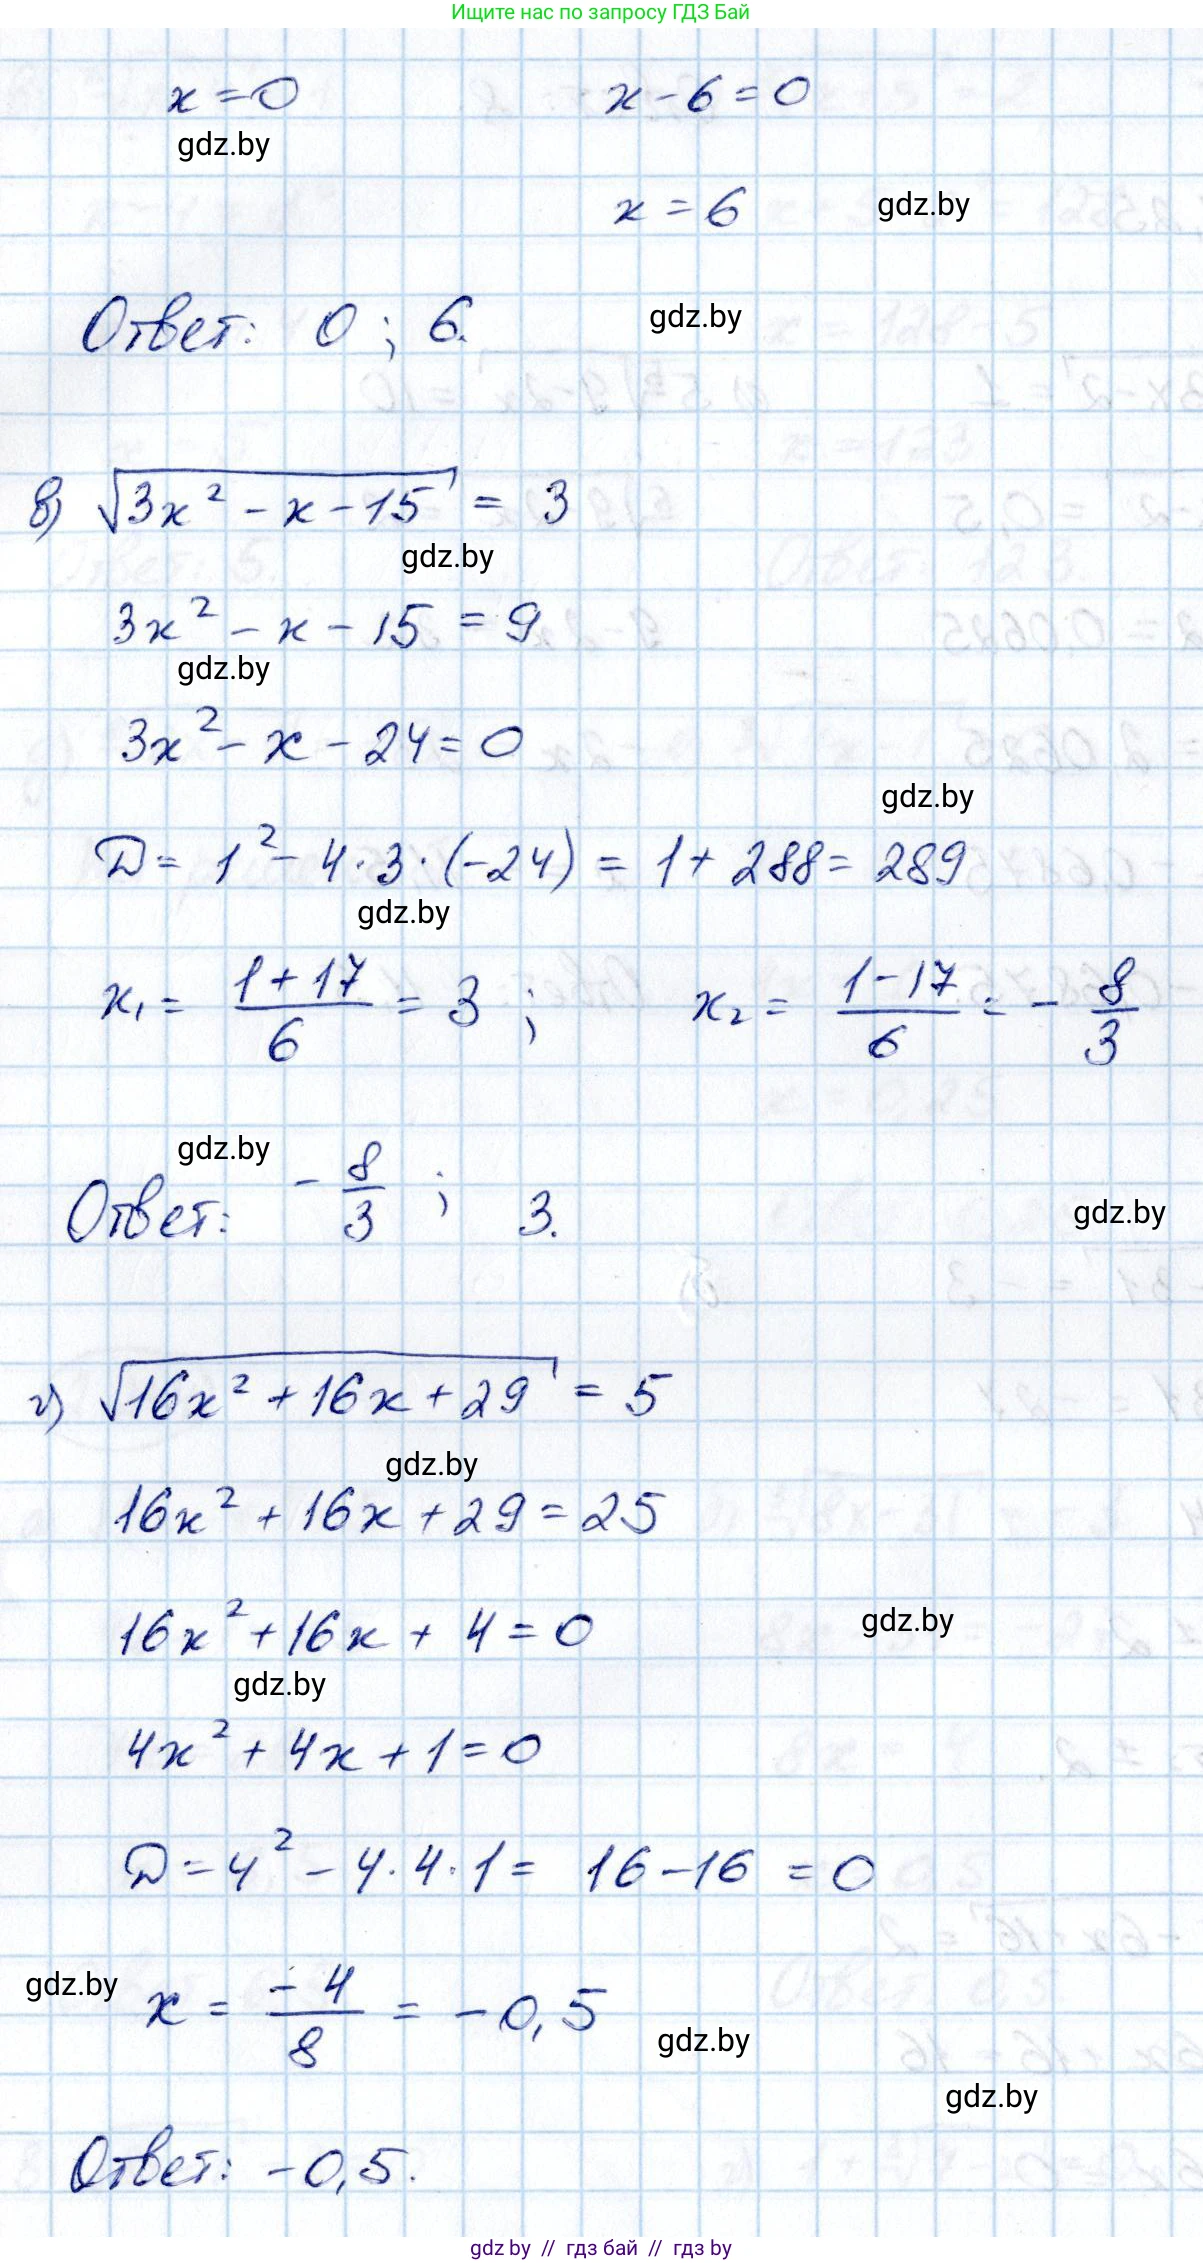 Ищите нас по запросу ГДЗ Бай
x = 0        x - 6 = 0
gdz.by
x = 6    gdz.by
Ответ: 0 ; 6.    gdz.by
в) √(3x² - x - 15) = 3
gdz.by
3x² - x - 15 = 9
gdz.by
3x² - x - 24 = 0
gdz.by
D = 1² - 4 · 3 · (-24) = 1 + 288 = 289
gdz.by
x₁ = (1 + 17)/6 = 3 ;    x₂ = (1 - 17)/6 = - 8/3
gdz.by
Ответ: - 8/3 ; 3.    gdz.by
г) √(16x² + 16x + 29) = 5
gdz.by
16x² + 16x + 29 = 25
16x² + 16x + 4 = 0    gdz.by
gdz.by
4x² + 4x + 1 = 0
D = 4² - 4 · 4 · 1 = 16 - 16 = 0
gdz.by    x = -4/8 = -0,5
gdz.by
gdz.by
Ответ: -0,5.
gdz by // гдз бай // гдз by